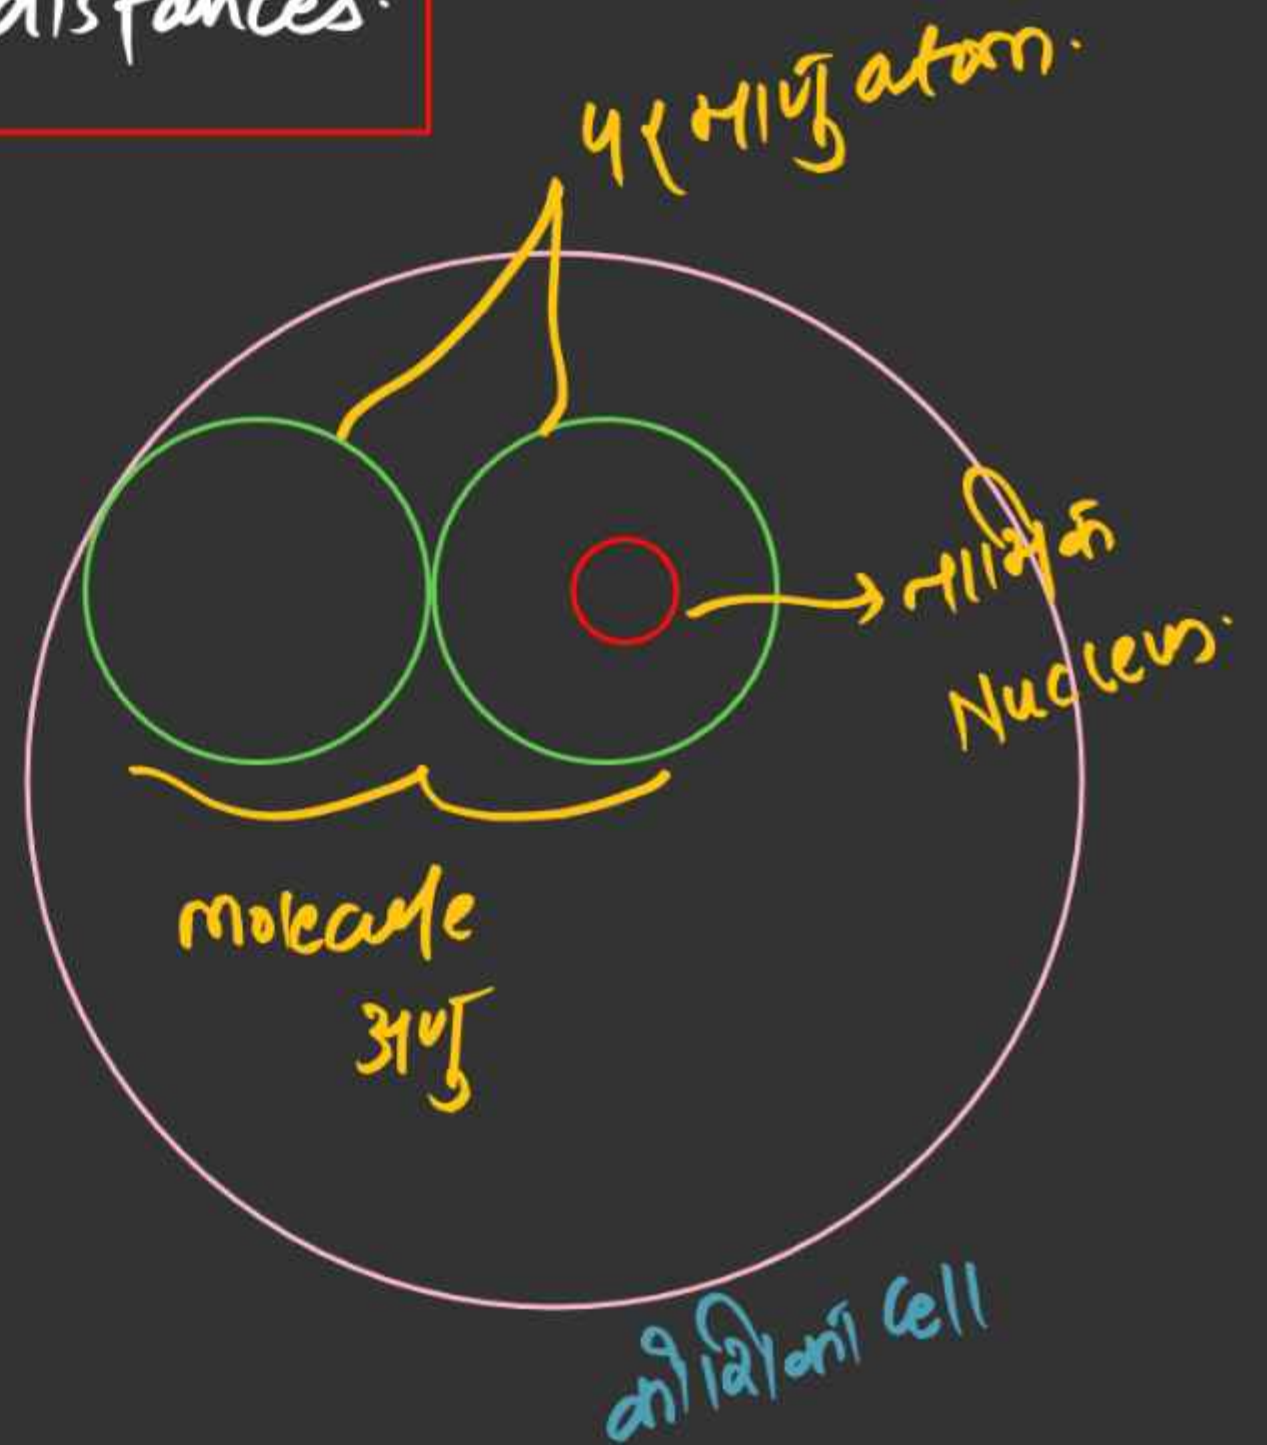 distances.
परमाणु atom.
नाभिक
Nucleus.
molecule
अणु
कोशिका cell